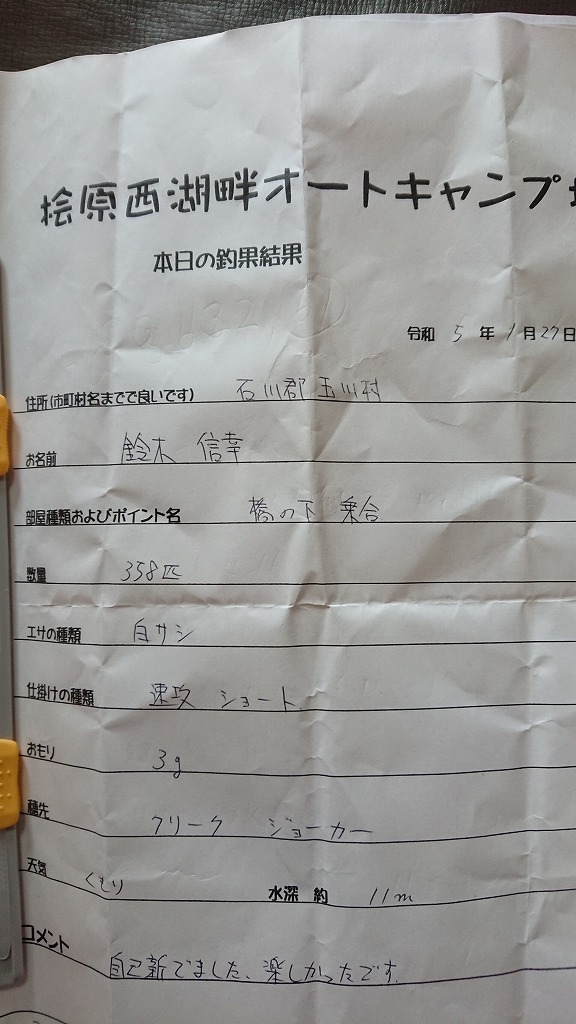 桧原西湖畔オートキャンプ
本日の釣果結果
令和 5 年 1 月 27 日
住所(市町村名までで良いです) 石川郡 玉川村
お名前 鈴木 信幸
部屋種類およびポイント名 橋の下 乗合
数量 358匹
エサの種類 白サシ
仕掛けの種類 速攻 ショート
おもり 3g
穂先 クリーク ジョーカー
天気 くもり 水深 約 11m
コメント 自己新でました、楽しかったです。